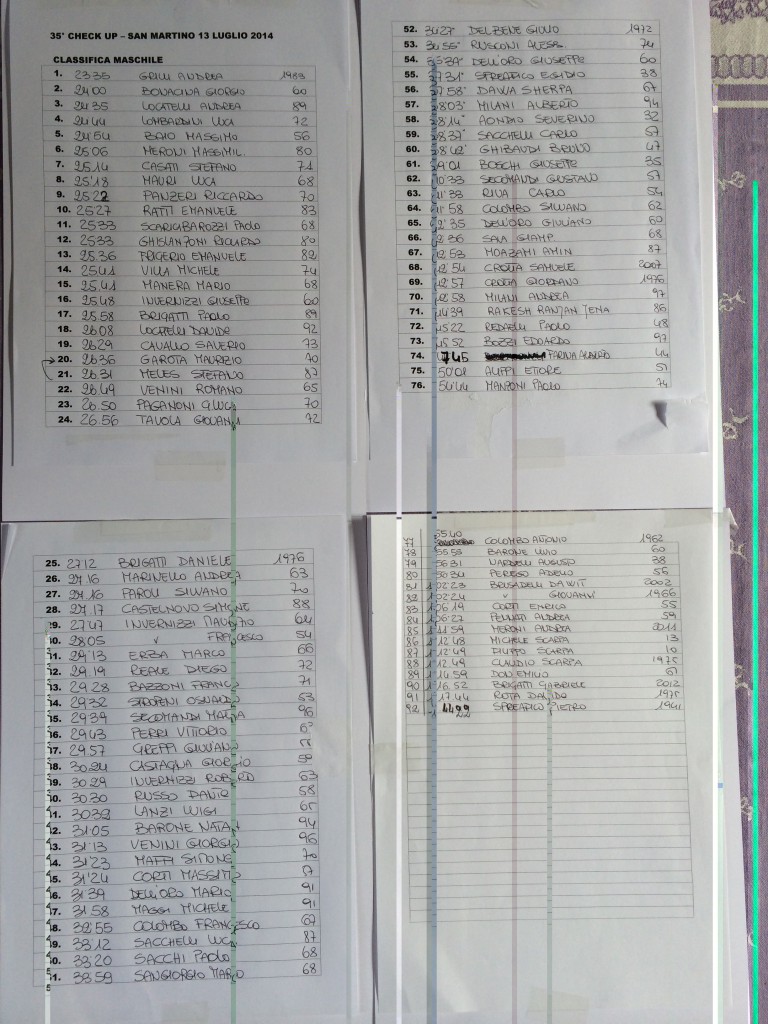 35° CHECK UP – SAN MARTINO 13 LUGLIO 2014
CLASSIFICA MASCHILE
1. 23 35 GRILLI ANDREA 1983
2. 24 00 BONACINA GIORGIO 60
3. 24 35 LOCATELLI ANDREA 89
4. 24 44 LOMBARDINI LUCA 72
5. 24 54 BAIO MASSIMO 56
6. 25 06 MERONI MASSIMIL. 80
7. 25 14 CASATI STEFANO 71
8. 25'18 MAURI LUCA 68
9. 25 22 PANZERI RICCARDO 70
10. 25 27 RATTI EMANUELE 83
11. 25 33 SCACCABAROZZI PAOLO 68
12. 25 33 GHISLANZONI RICCARDO 80
13. 25.36 FRIGERIO EMANUELE 82
14. 25 41 VILLA MICHELE 74
15. 25.41 MANERA MARIO 68
16. 25 48 INVERNIZZI GIUSEPPE 60
17. 25.58 BRIGATTI PAOLO 89
18. 26 08 LOCATELLI DAVIDE 92
19. 26 29 CAVALLO SAVERIO 73
20. 26 36 GAROTA MAURIZIO 70
21. 26 31 MELES STEFANO 87
22. 26.49 VENINI ROMANO 65
23. 26.50 PAGANONI GLUCA 70
24. 26.56 TAVOLA GIOVANNI 72
25. 27 12 BRIGATTI DANIELE 1976
26. 27.16 MARINELLO ANDREA 63
27. 27.16 PAROLI SILVANO 70
28. 27.17 CASTELNOVO SIMONE 88
29. 27 47 INVERNIZZI MAURIZIO 64
30. 28.05 " FRANCESCO 54
31. 29'13 ERBA MARCO 66
32. 29.19 REALE DIEGO 72
33. 29.28 BAZZONI FRANCO 71
34. 29 32 STROPENI OSVALDO 53
35. 29 39 SECOMANDI MATTIA 96
36. 29 43 PERRI VITTORIO
37. 29.57 GREPPI GIULIANO
38. 30.24 CASTAGNA GIORGIO 59
39. 30.29 INVERNIZZI ROBERTO 63
40. 30 30 RUSSO DAVID 58
41. 30 39 LANZI LUIGI 65
42. 31.05 BARONE NATAN 94
43. 31'13 VENINI GIORGIO 96
44. 31'23 MAFFI SIMONE 70
45. 31'24 CORTI MASSIMO
46. 31'39 DELL'ORO MARIO 91
47. 31.58 MAGGI MICHELE 91
48. 32'55 COLOMBO FRANCESCO 67
49. 33'12 SACCHELLI LUCA 87
50. 33.20 SACCHI PAOLO 68
51. 33.59 SANGIORGIO MARCO 68
52. 34 27 DEL BENE GIULIO 1972
53. 36 55" RUSCONI ALESS. 74
54. DELL'ORO GIUSEPPE 60
55. 37'31" SPREAFICO EGIDIO 38
56. 37'58" DAWA SHERPA 67
57. 38'03" MILANI ALBERTO 94
58. 38'14" AONDIO SEVERINO 32
59. 38'37" SACCHELLI CARLO 57
60. 38'42" GHIBAUDI BRUNO 47
61. 39'01 BOSCHI GIUSEPPE 35
62. 40'33 SECOMANDI GUSTAVO 57
63. 41'33 RIVA CARLO 54
64. 41'58 COLOMBO SILVANO 62
65. 42'35 DELL'ORO GIULIANO 60
66. 42'36 SALA GIAMP. 68
67. 42'53 MOAZAMI AMIN 87
68. 42'54 CROTTA SAMUELE 2007
69. 42'57 CROTTA GIORDANO 1976
70. 42'58 MILANI ANDREA 97
71. 44'39 RAKESH RANJAN JENA 86
72. 45'22 REDAELLI PAOLO 48
73. 45'52 BOZZI EDOARDO 97
74. 745 FARINA ALBERTO 44
75. 50'02 ALIPPI ETTORE 51
76. 54'44 MANZONI PAOLO 74
77 55.40 COLOMBO ANTONIO 1962
78 55 55 BARONE LIVIO 60
79 56 31 NARDELLI AUGUSTO 38
80 56 34 PEREGO ADELIO 56
81 1 02'23 BRUSADELLI DAWIT 2002
82 1 02'24 " GIOVANNI 1966
83 1 06'19 CORTI ENRICO 55
84 1 06'27 PENNATI ANDREA 59
85 1 11'59 MERONI ANDREA 2011
86 1 12'48 MICHELE SCARPA 13
87 1 12'49 FILIPPO SCARPA 10
88 1 12'49 CLAUDIO SCARPA 1975
89 1 14.59 DON EMILIO 67
90 1 16.52 BRIGATTI GABRIELE 2012
91 1 17.44 ROTA DAVIDE 1975
92 1 4422 SPREAFICO PIETRO 1941